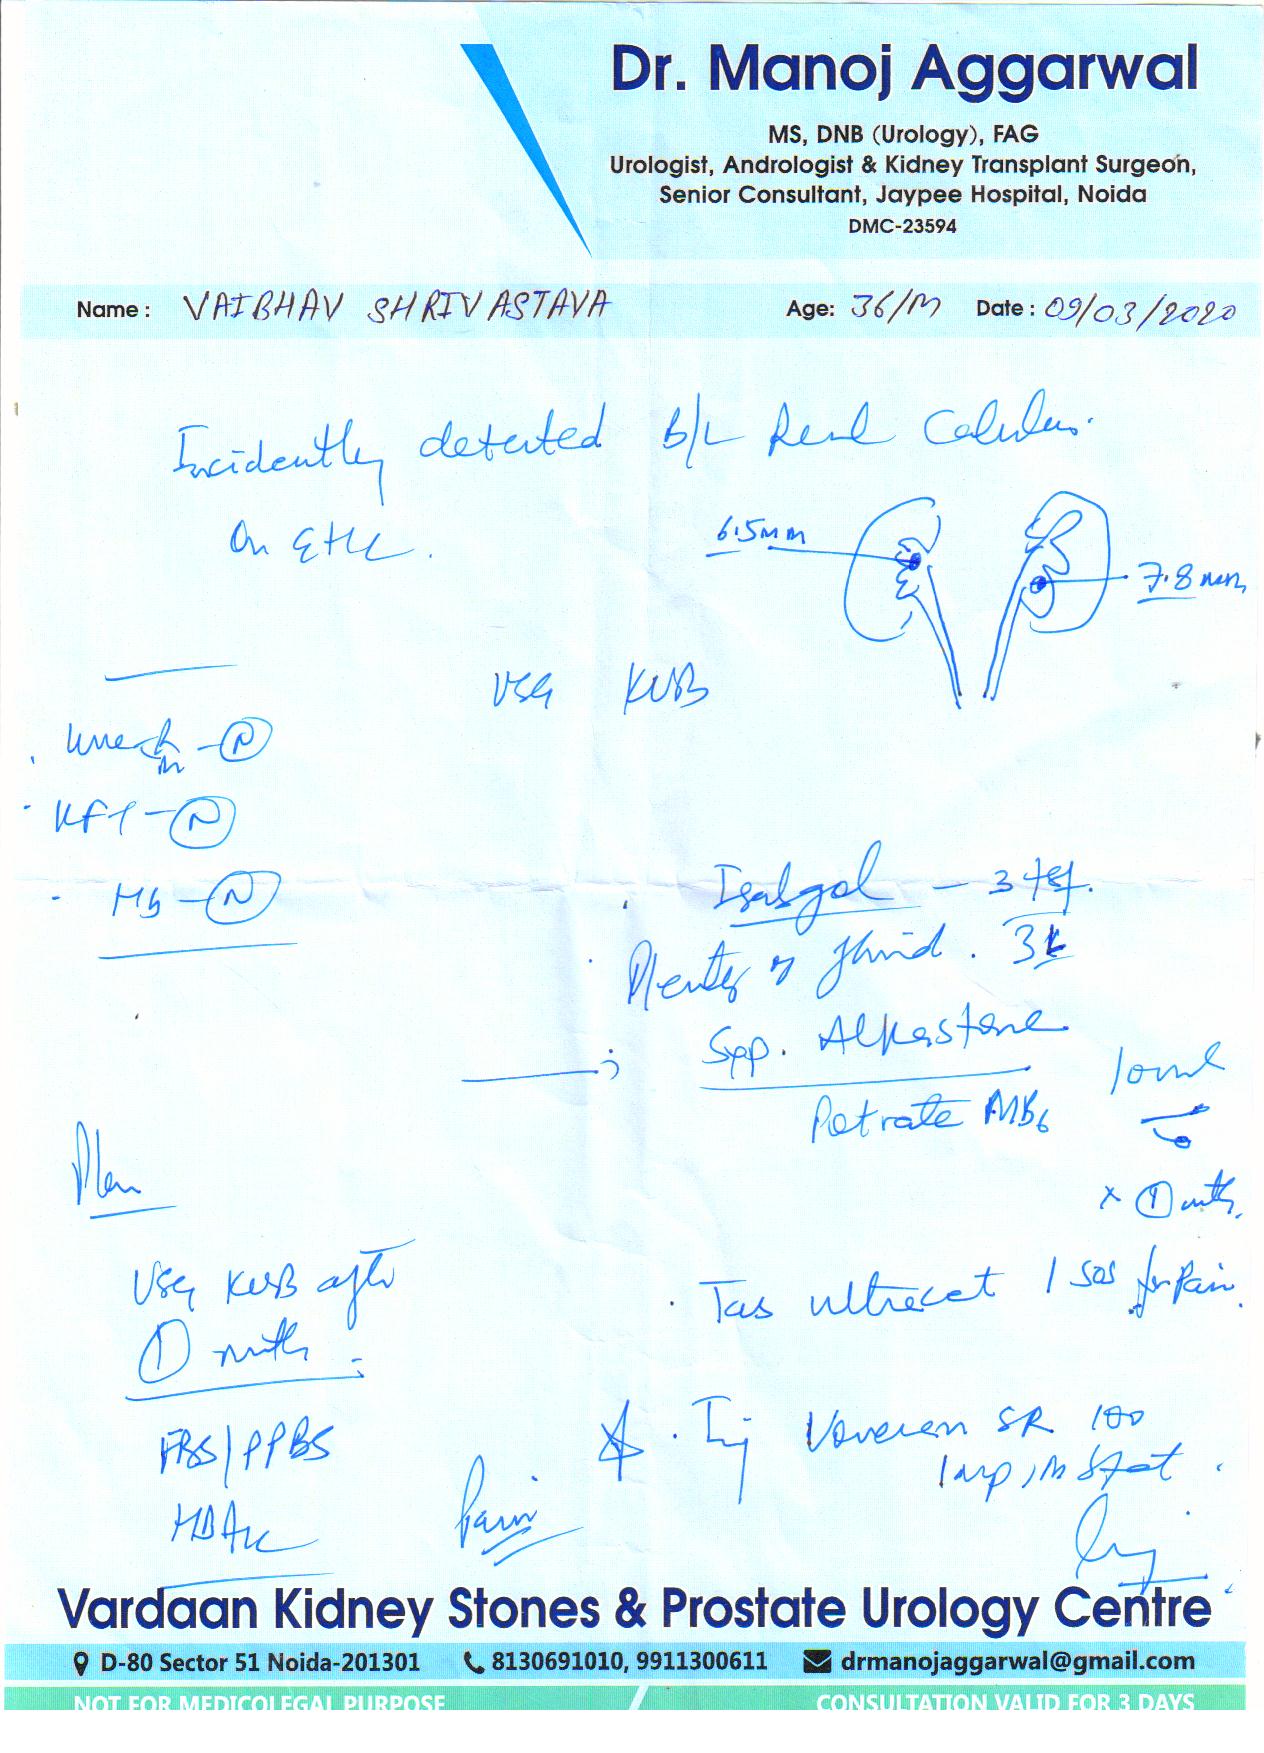 Dr. Manoj Aggarwal
MS, DNB (Urology), FAG
Urologist, Andrologist & Kidney Transplant Surgeon,
Senior Consultant, Jaypee Hospital, Noida
DMC-23594
Name : VAIBHAV SHRIVASTAVA Age: 36/M Date : 09/03/2020
Incidently detected B/L Renal Calculus.
On
6.5mm
7.8mm
USG KUB
Urine R/m - N
KFT - N
Hb - N
Isabgol - 3 tsf.
Plenty of fluid. 3L
Syp. Alkastone 10ml
Potrate MB6
x 1 mth.
Plan
USG KUB after
1 mth.
Tab ultracet 1 SOS for Pain.
Inj Voveran SR 100
1 amp IM Stat.
FBS/PPBS
HBA1c
Pain
Vardaan Kidney Stones & Prostate Urology Centre
D-80 Sector 51 Noida-201301 8130691010, 9911300611 drmanojaggarwal@gmail.com
NOT FOR MEDICOLEGAL PURPOSE / CONSULTATION VALID FOR 3 DAYS